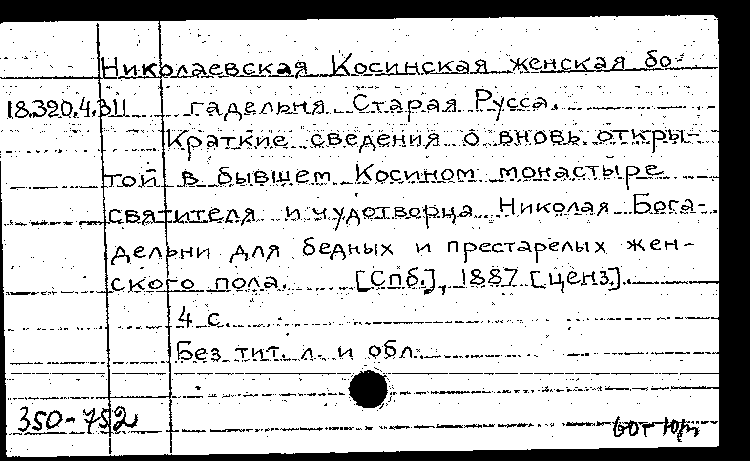 Николаевская Косинская женская бо-
18.320.4.311 гадельня Старая Русса.
Краткие сведения о вновь откры-
той в бывшем Косином монастыре
святителя и чудотворца Николая Бога-
дельни для бедных и престарелых жен-
ского пола. [Спб.], 1887 [ценз].
4 с.
Без тит. л. и обл.
350-752